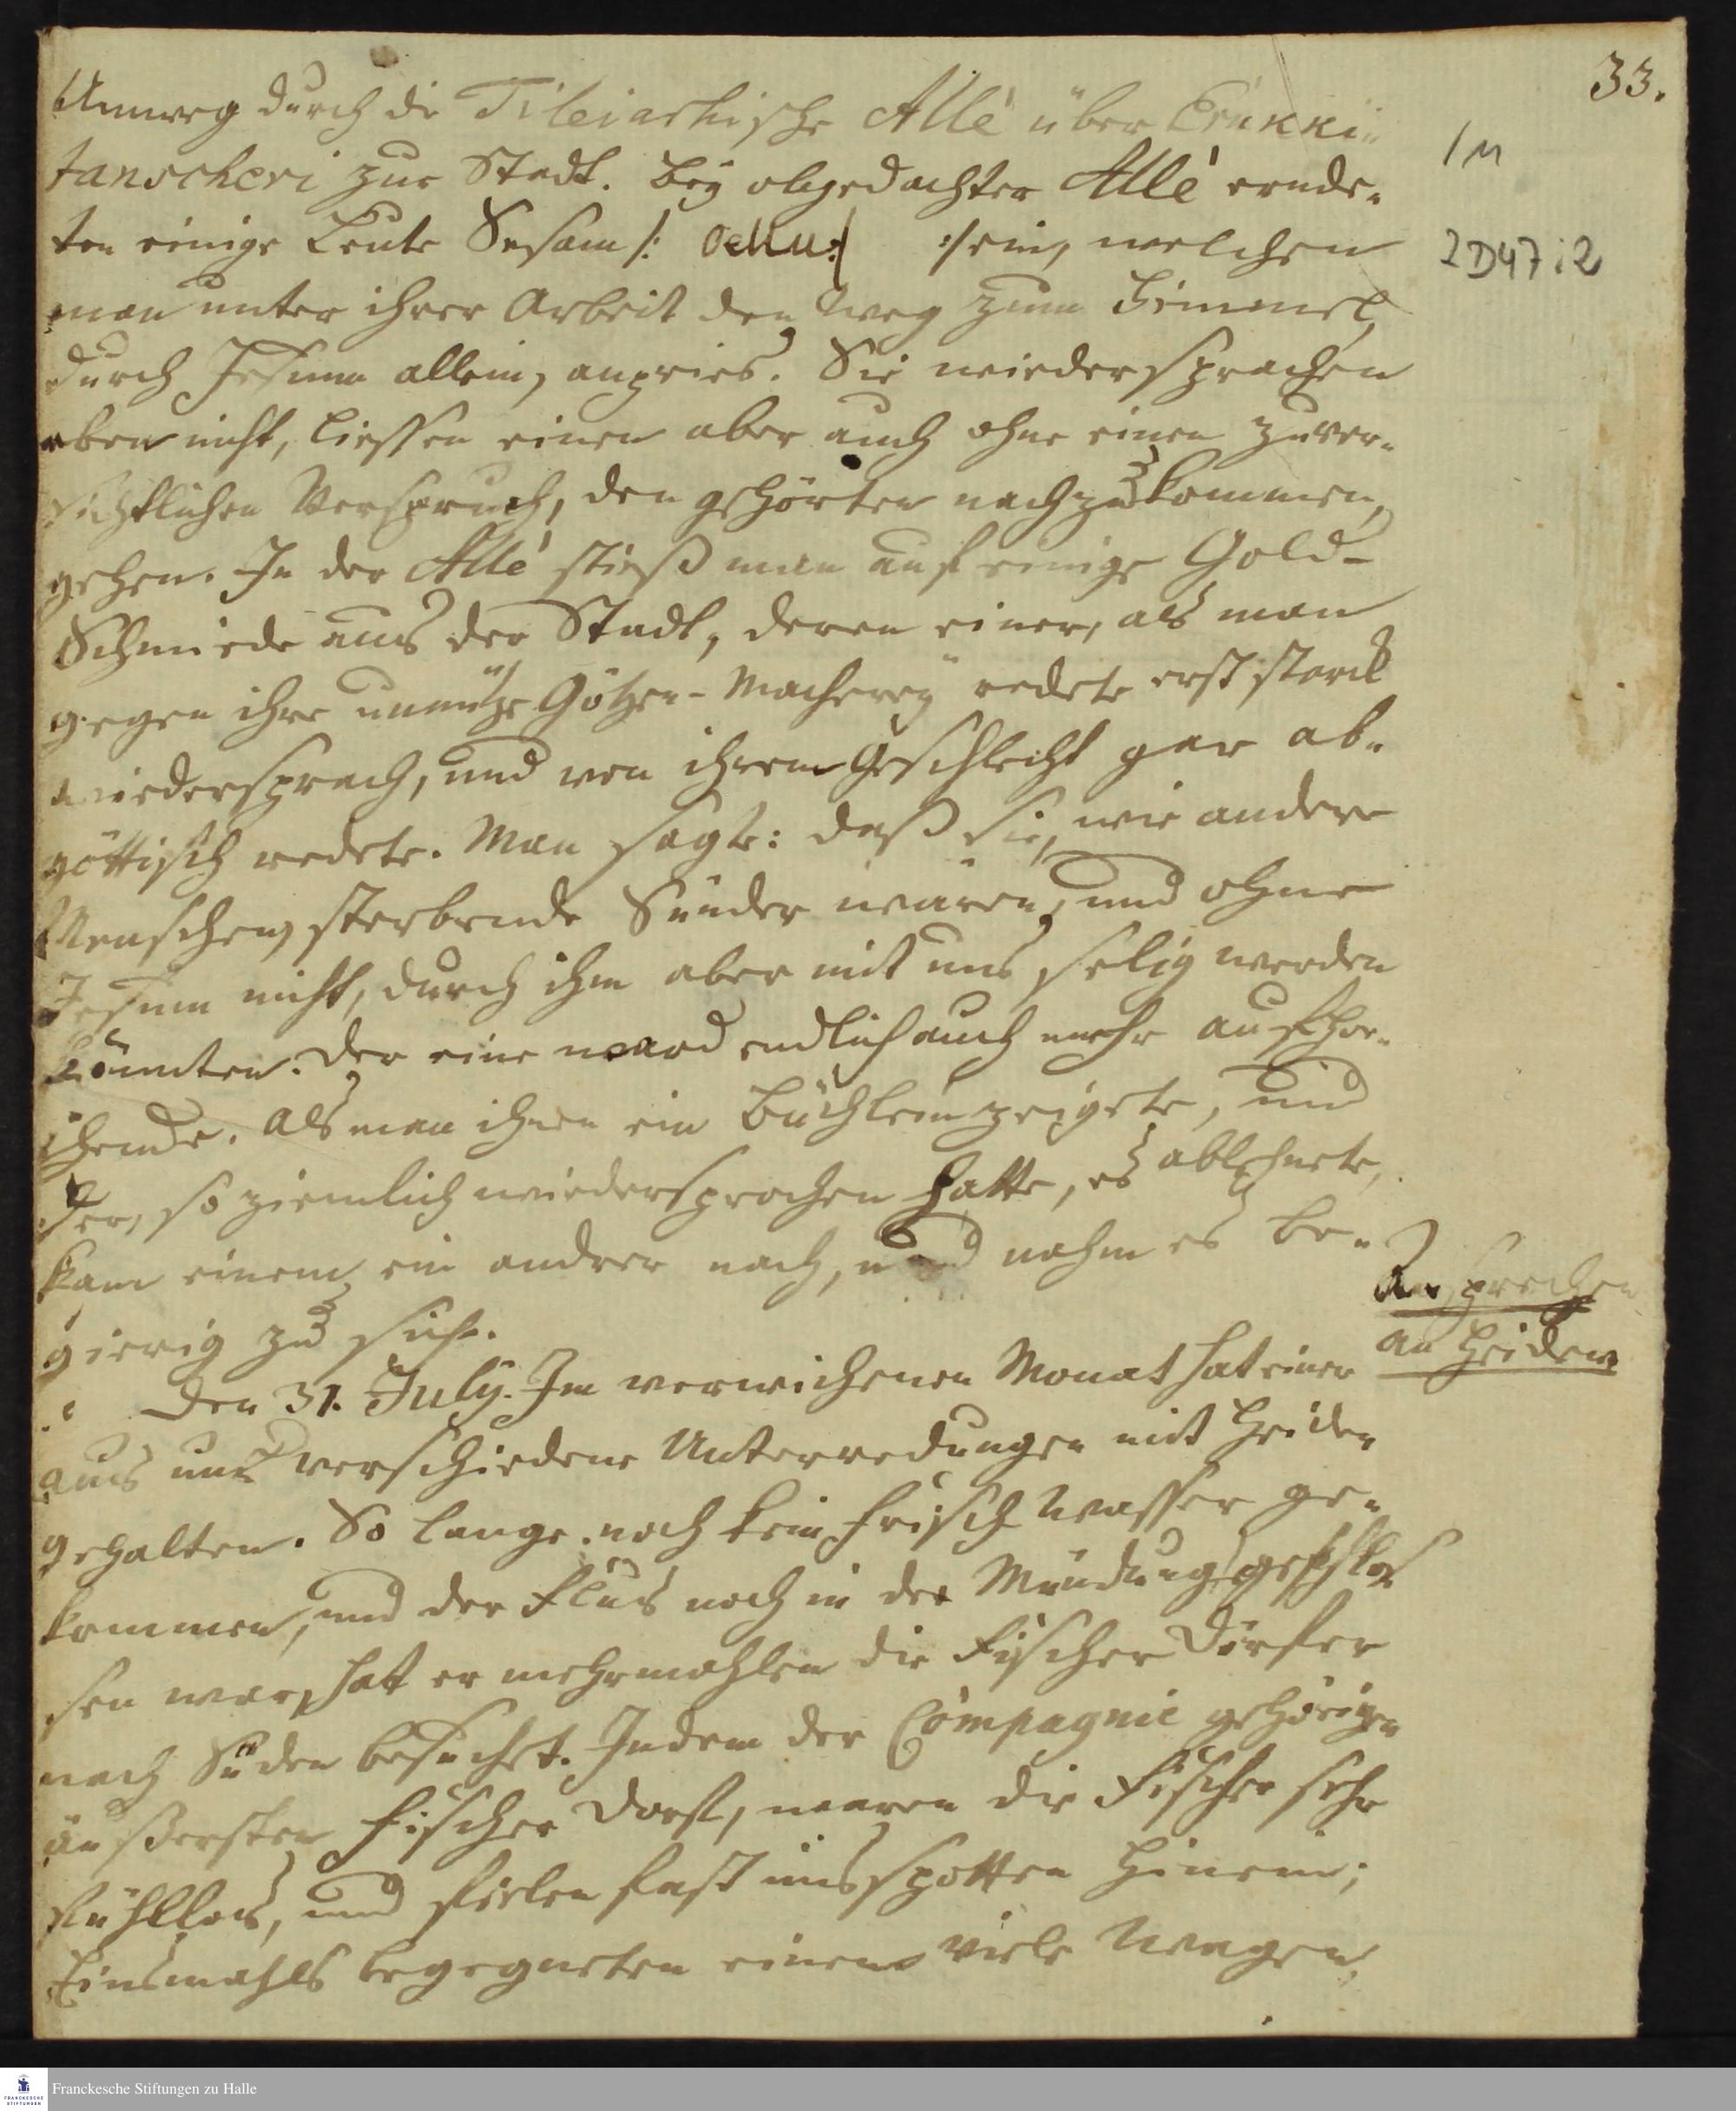 33.
Umweg durch die Tileiarhische Allé über Erukki-
tanscheri zur Stadt. Bey obgedachter Allé ernde-
ten einige Leute Sesam /: :/ ein, welchen
man unter ihrer Arbeit den Weg zum Himmel,
durch Jesum allein, anpries. Sie wiedersprachen
eben nicht, liessen einen aber auch ohne einen zuver-
sichtlichen Verspruch, den gehörten nachzukommen,
gehen. In der Allé stieß man auf einige Gold-
Schmiede aus der Stadt, deren einer, als man
gegen ihre unnütze Götzen-Macherey redete erst starck
wiedersprach, und von ihrem Geschlecht gar ab-
göttisch redete. Man sagte: daß sie, wie andere
Menschen, sterbende Sünder wären, und ohne
Jesum nicht, durch ihn aber mit uns selig werden
könnten. Der eine ward endlich auch mehr aufhor-
chende. Als man ihnen ein Büchlein zeigete, und
der, so ziemlich wiedersprochen hatte, es ablehnete,
kam einem ein andrer nach, und nahm es be-
gierig zu sich.
Den 31. July. Im verwichenen Monat hat einer
aus uns verschiedene Unterredungen mit Heiden
gehalten. So lange noch kein frisch Wasser ge-
kommen, und der Fluß noch in der Mündung geschlos-
sen war, hatt er mehrmahlen die Fischer Dörfer
nach Süden besuchet. In dem der Compagnie gehörigen
äußersten Fischer Dorf, waren die Fischer sehr
fühllos, und fielen fast ins spotten hinein;
Einsmahls begegneten einem viele Wagen,
/M
2D47:2
Ansprachen
an Heiden
Franckesche Stiftungen zu Halle
FRANCKESCHE
STIFTUNGEN